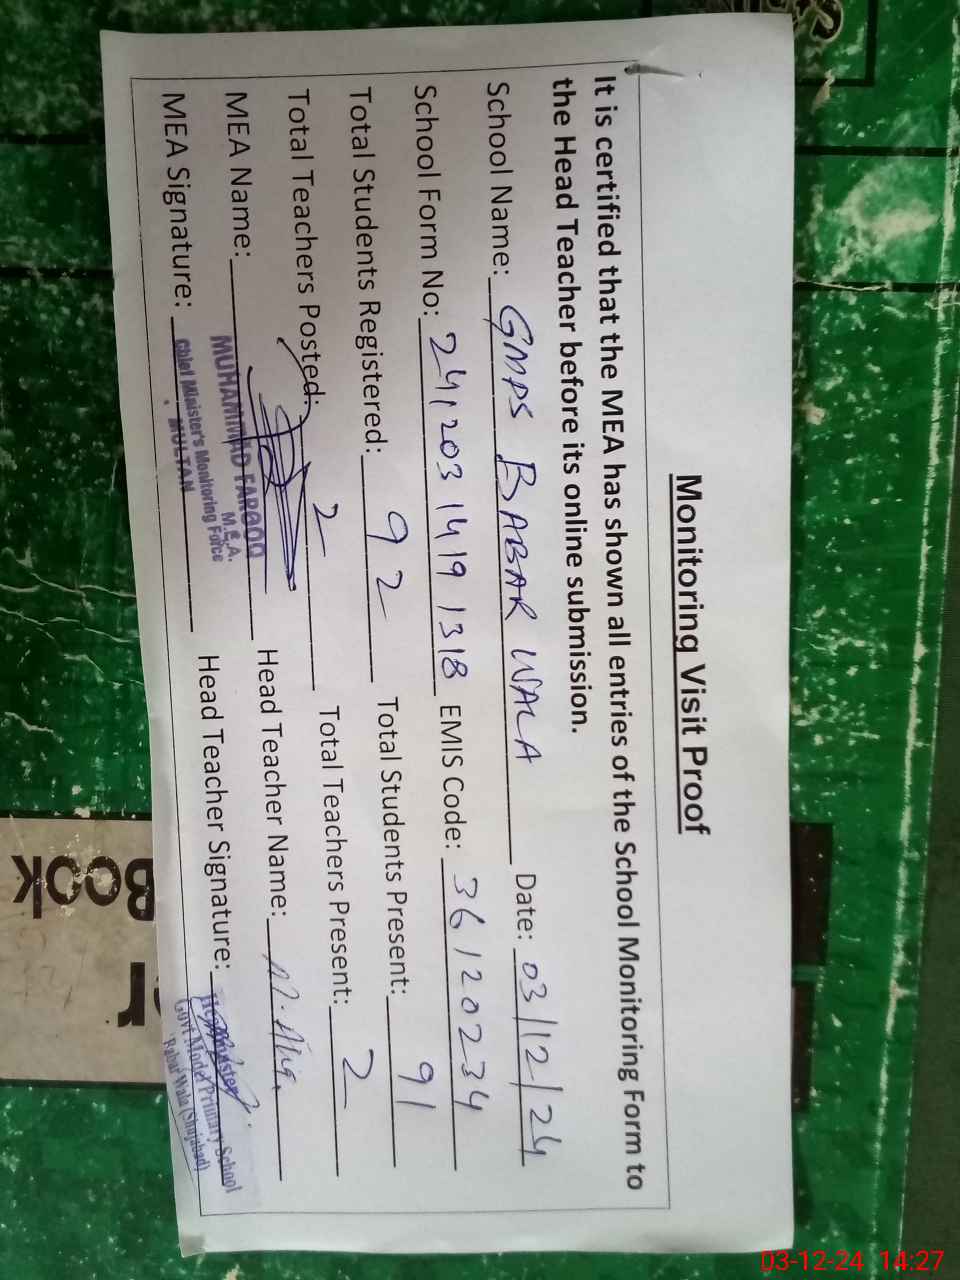 Monitoring Visit Proof
It is certified that the MEA has shown all entries of the School Monitoring Form to
the Head Teacher before its online submission.
School Name: GMPS BABAR WALA Date: 03/12/24
School Form No: 24,203 1419 1318 EMIS Code: 36120234
Total Students Registered: 92 Total Students Present: 91
Total Teachers Posted: 2 Total Teachers Present: 2
MEA Name: Head Teacher Name:
MUHAMMAD FAROOQ
M.E.A.
Chief Minister's Monitoring Force
MULTAN
MEA Signature: Head Teacher Signature:
Govt Model Primary School
Babar Wala (Shujabad)
Book
r
03-12-24 14:27